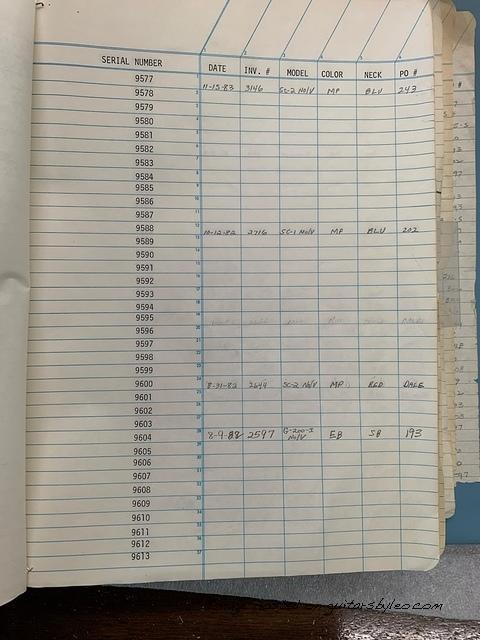 SERIAL NUMBER DATE INV. # MODEL COLOR NECK PO #
9577
9578 11-15-83 3146 SC-2 No/V MP BLU 243
9579
9580
9581
9582
9583
9584
9585
9586
9587
9588 10-12-82 2716 SC-1 No/V MP BLU 202
9589
9590
9591
9592
9593
9594
9595
9596
9597
9598
9599
9600 8-31-82 2644 SC-2 No/V MP RED DALE
9601
9602
9603
9604 8-9-82 2597 G-200-I No/V EB SB 193
9605
9606
9607
9608
9609
9610
9611
9612
9613
guitarsbyleo.com